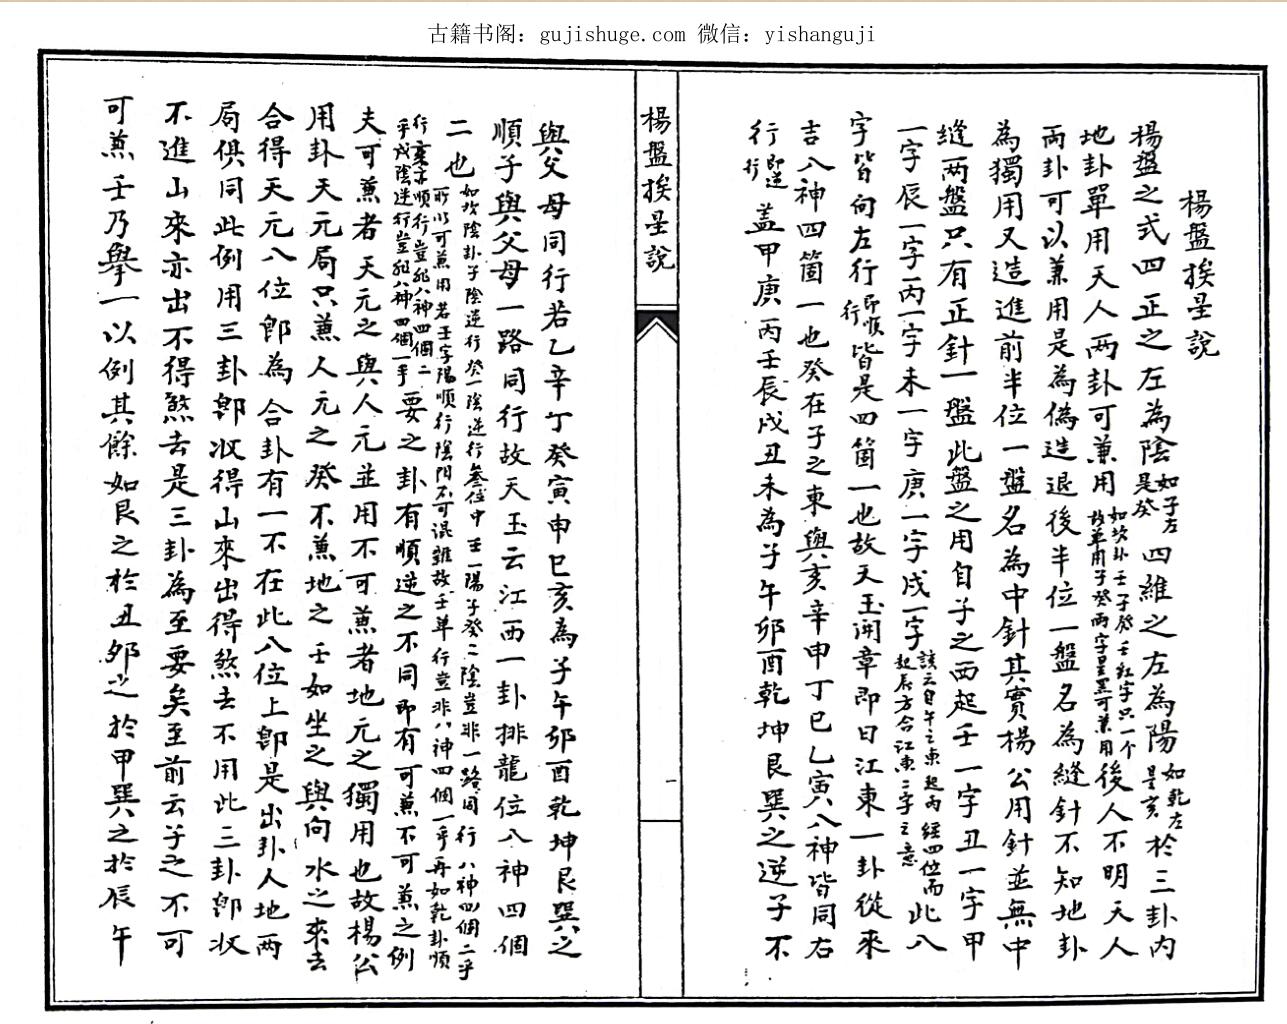 古籍书阁：gujishuge.com 微信：yishanguji
楊盤挨星說
楊盤之式四正之左為陰如子左是癸四維之左為陽如乾左是亥於三卦内
地卦單用天人兩卦可兼用如坎卦壬子癸壬紅字只一个故單用子癸兩字是黑可兼用後人不明天人
兩卦可以兼用是為偽造退後半位一盤名為縫針不知地卦
為獨用又造進前半位一盤名為中針其實楊公用針並無中
縫兩盤只有正針一盤此盤之用自子之西起壬一字丑一字甲
一字辰一字丙一字未一字庚一字戌一字該云自午之東起丙經四位而起辰方合江東二字之意此八
字皆向左行即順行皆是四箇一也故天玉開章即曰江東一卦從來
吉八神四箇一也癸在子之東與亥辛申丁巳乙寅八神皆同右
行即逆行蓋甲庚丙壬辰戌丑未為子午卯酉乾坤艮巽之逆子不
楊盤挨星說
一
與父母同行若乙辛丁癸寅申巳亥為子午卯酉乾坤艮巽之
順子與父母一路同行故天玉云江西一卦排龍位八神四個
二也如坎陰卦子陰逆行癸一陰逆行叁位中壬一陽子癸二陰豈非一路同行八神四個二乎所以可兼用若壬字陽順行陰陽不可混雜故壬單行豈非八神四個一乎再如乾卦順
行乾亥順行豈非八神四個二乎戌陰逆行豈非八神四個一乎要之卦有順逆之不同即有可兼不可兼之例
夫可兼者天元之與人元並用不可兼者地元之獨用也故楊公
用卦天元局只兼人元之癸不兼地之壬如坐之與向水之來去
合得天元八位即為合卦有一不在此八位上即是出卦人地兩
局俱同此例用三卦即收得山來出得煞去不用此三卦即收
不進山來亦出不得煞去是三卦為至要矣至前云子之不可
可兼壬乃舉一以例其餘如艮之於丑卯之於甲巽之於辰午